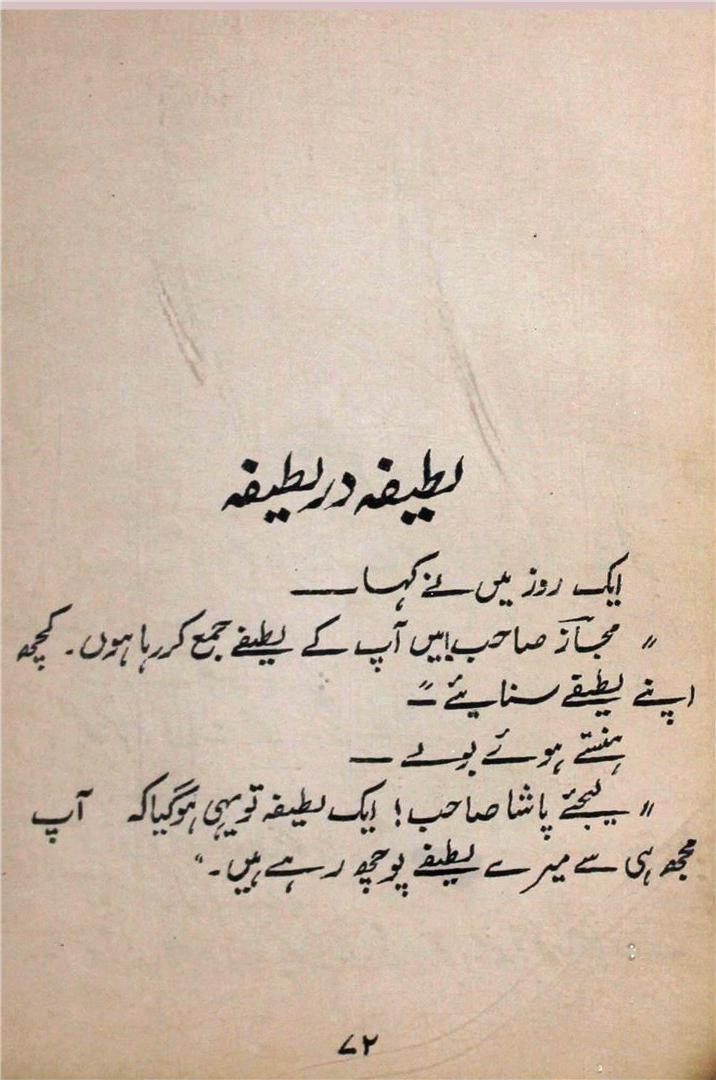 لطیفہ در لطیفہ
ایک روز میں نے کہا ——
" مجازؔ صاحب! میں آپ کے لطیفے جمع کر رہا ہوں۔ کچھ
اپنے لطیفے سنایئے "—
ہنستے ہوئے بولے ——
" لیجئے پاشا صاحب! ایک لطیفہ تو یہی ہو گیا کہ آپ
مجھ ہی سے میرے لطیفے پوچھ رہے ہیں۔"
۷۲